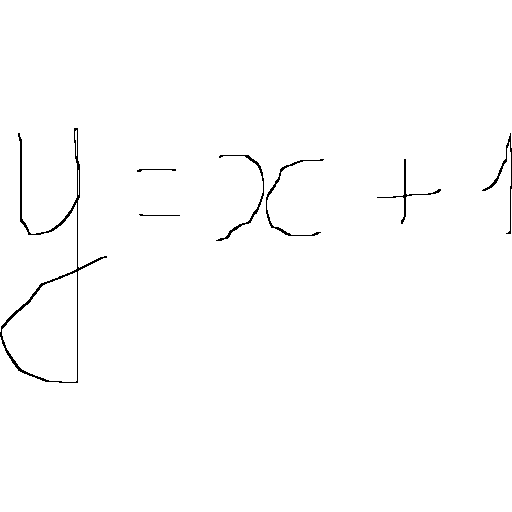 y = x + 1